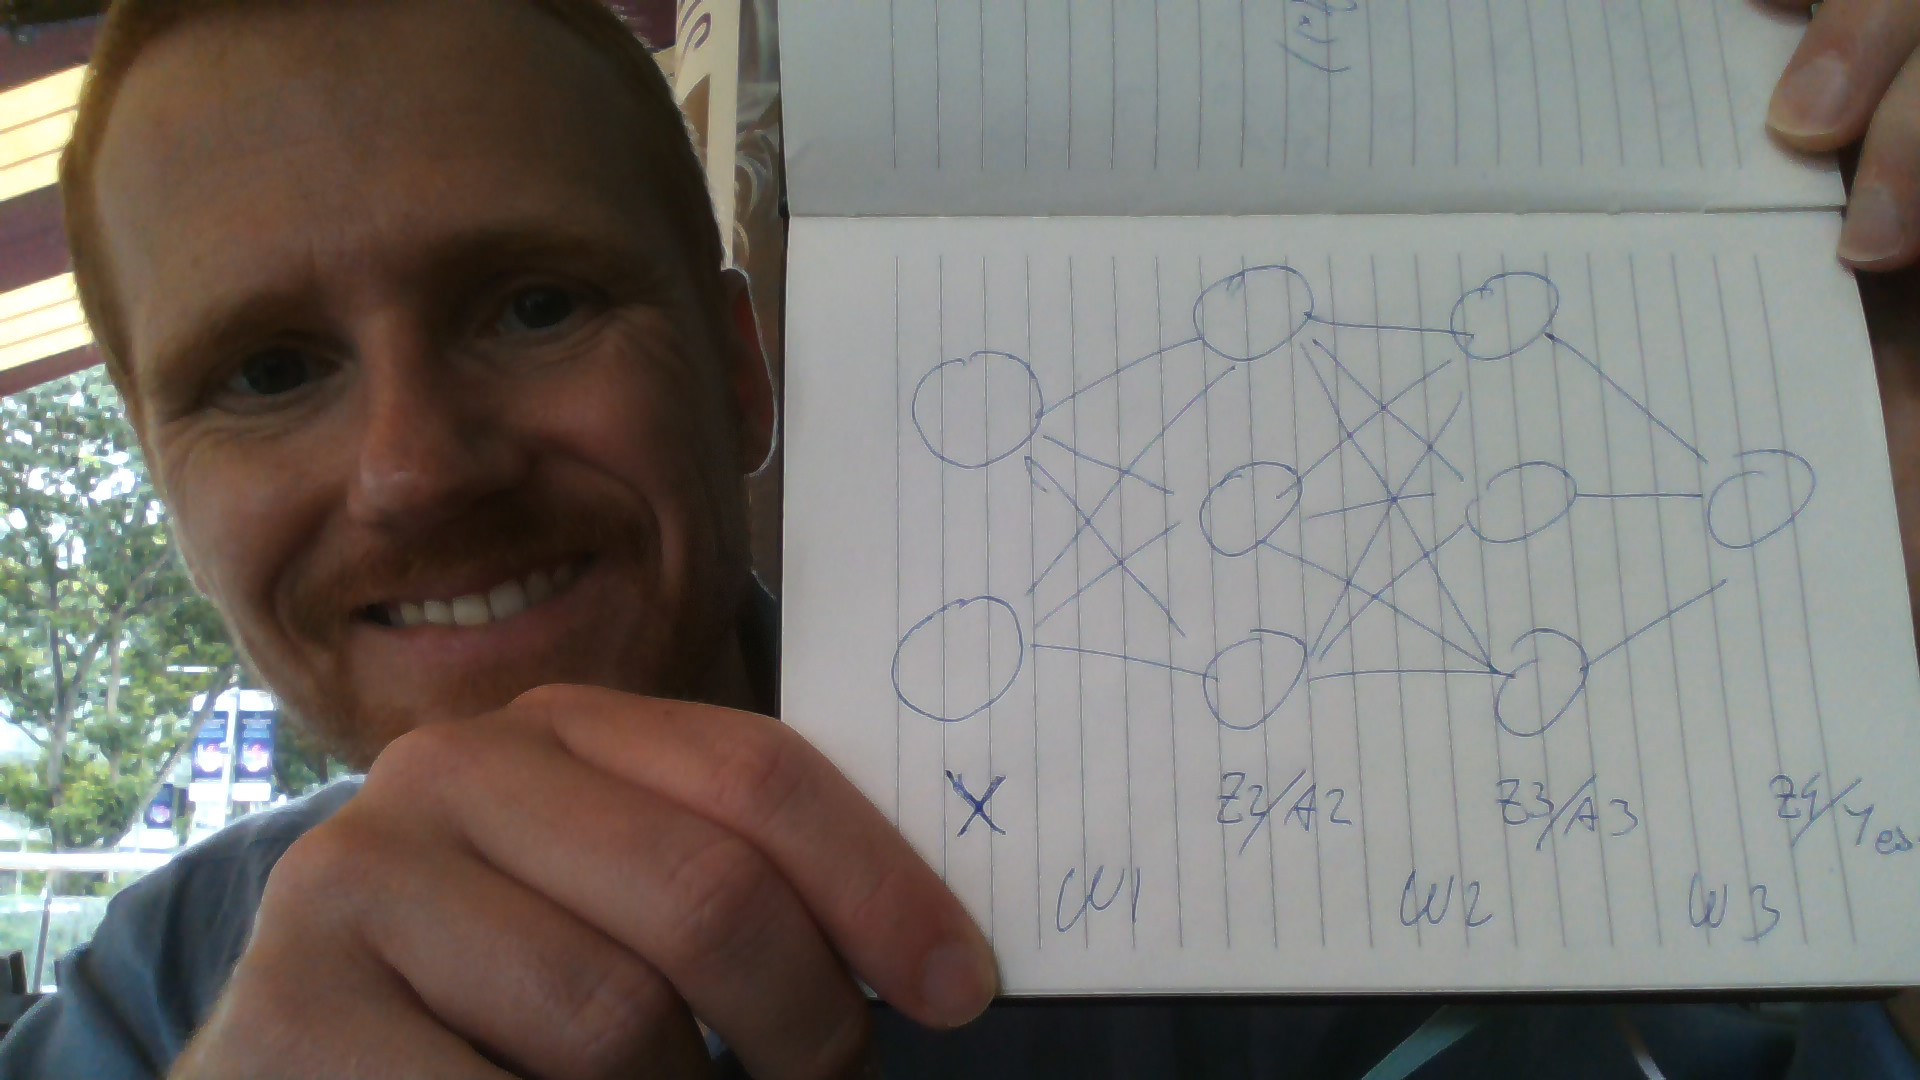 X Z2/A2 Z3/A3 Z4/Yes
W1 W2 W3